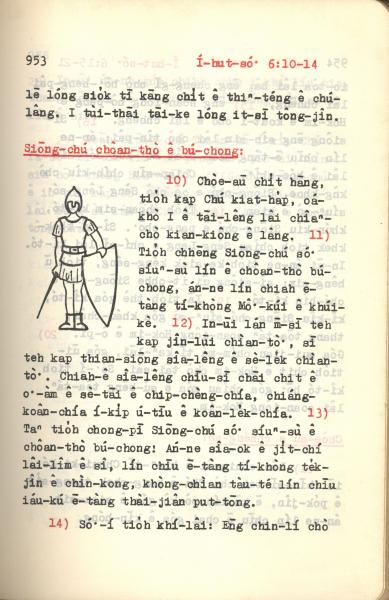 953 Í-hut-só· 6:10-14
lē lóng sio̍k tī kāng chi̍t ê thiⁿ-téng ê chú-
lâng. I tùi-thāi tāi-ke lóng it-sī tông-jîn.
Siōng-chú choân-thò ê bú-chong:
10) Chòe-āu chi̍t hāng,
tio̍h kap Chú kiat-ha̍p, oá-
khò I ê tāi-lêng lâi chiâⁿ-
chò kian-kiông ê lâng. 11)
Tio̍h chhēng Siōng-chú só·
siúⁿ-sù lín ê choân-thò bú-
chong, án-ne lín chiah ē-
tàng tí-khòng Mô·-kúi ê khúi-
kè. 12) In-ūi lán m̄-sī teh
kap jîn-lūi chiàn-tò·, sī
teh kap thian-siōng siâ-lêng ê sè-le̍k chiàn-
tò·. Chiah-ê siâ-lêng chiū-sī chāi chit ê
o·-àm ê sè-tāi ê chip-chèng-chiá, chiáng-
koân-chiá í-ki̍p ú-tiū ê koân-le̍k-chiá. 13)
Taⁿ tio̍h chong-pī Siōng-chú só· siúⁿ-sù ê
choân-thò bú-chong: Án-ne siâ-ok ê ji̍t-chí
lâi-lîm ê sî, lín chiū ē-tàng tí-khòng te̍k-
jîn ê chìn-kong, khòng-chiàn tàu-té lín chiū
iáu-kú ē-tàng thái-jiân put-tōng.
14) Só·-í tio̍h khí-lâi: Ēng chin-lí chò